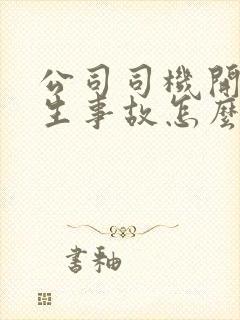 公司司機開
生事故怎麼
書釉